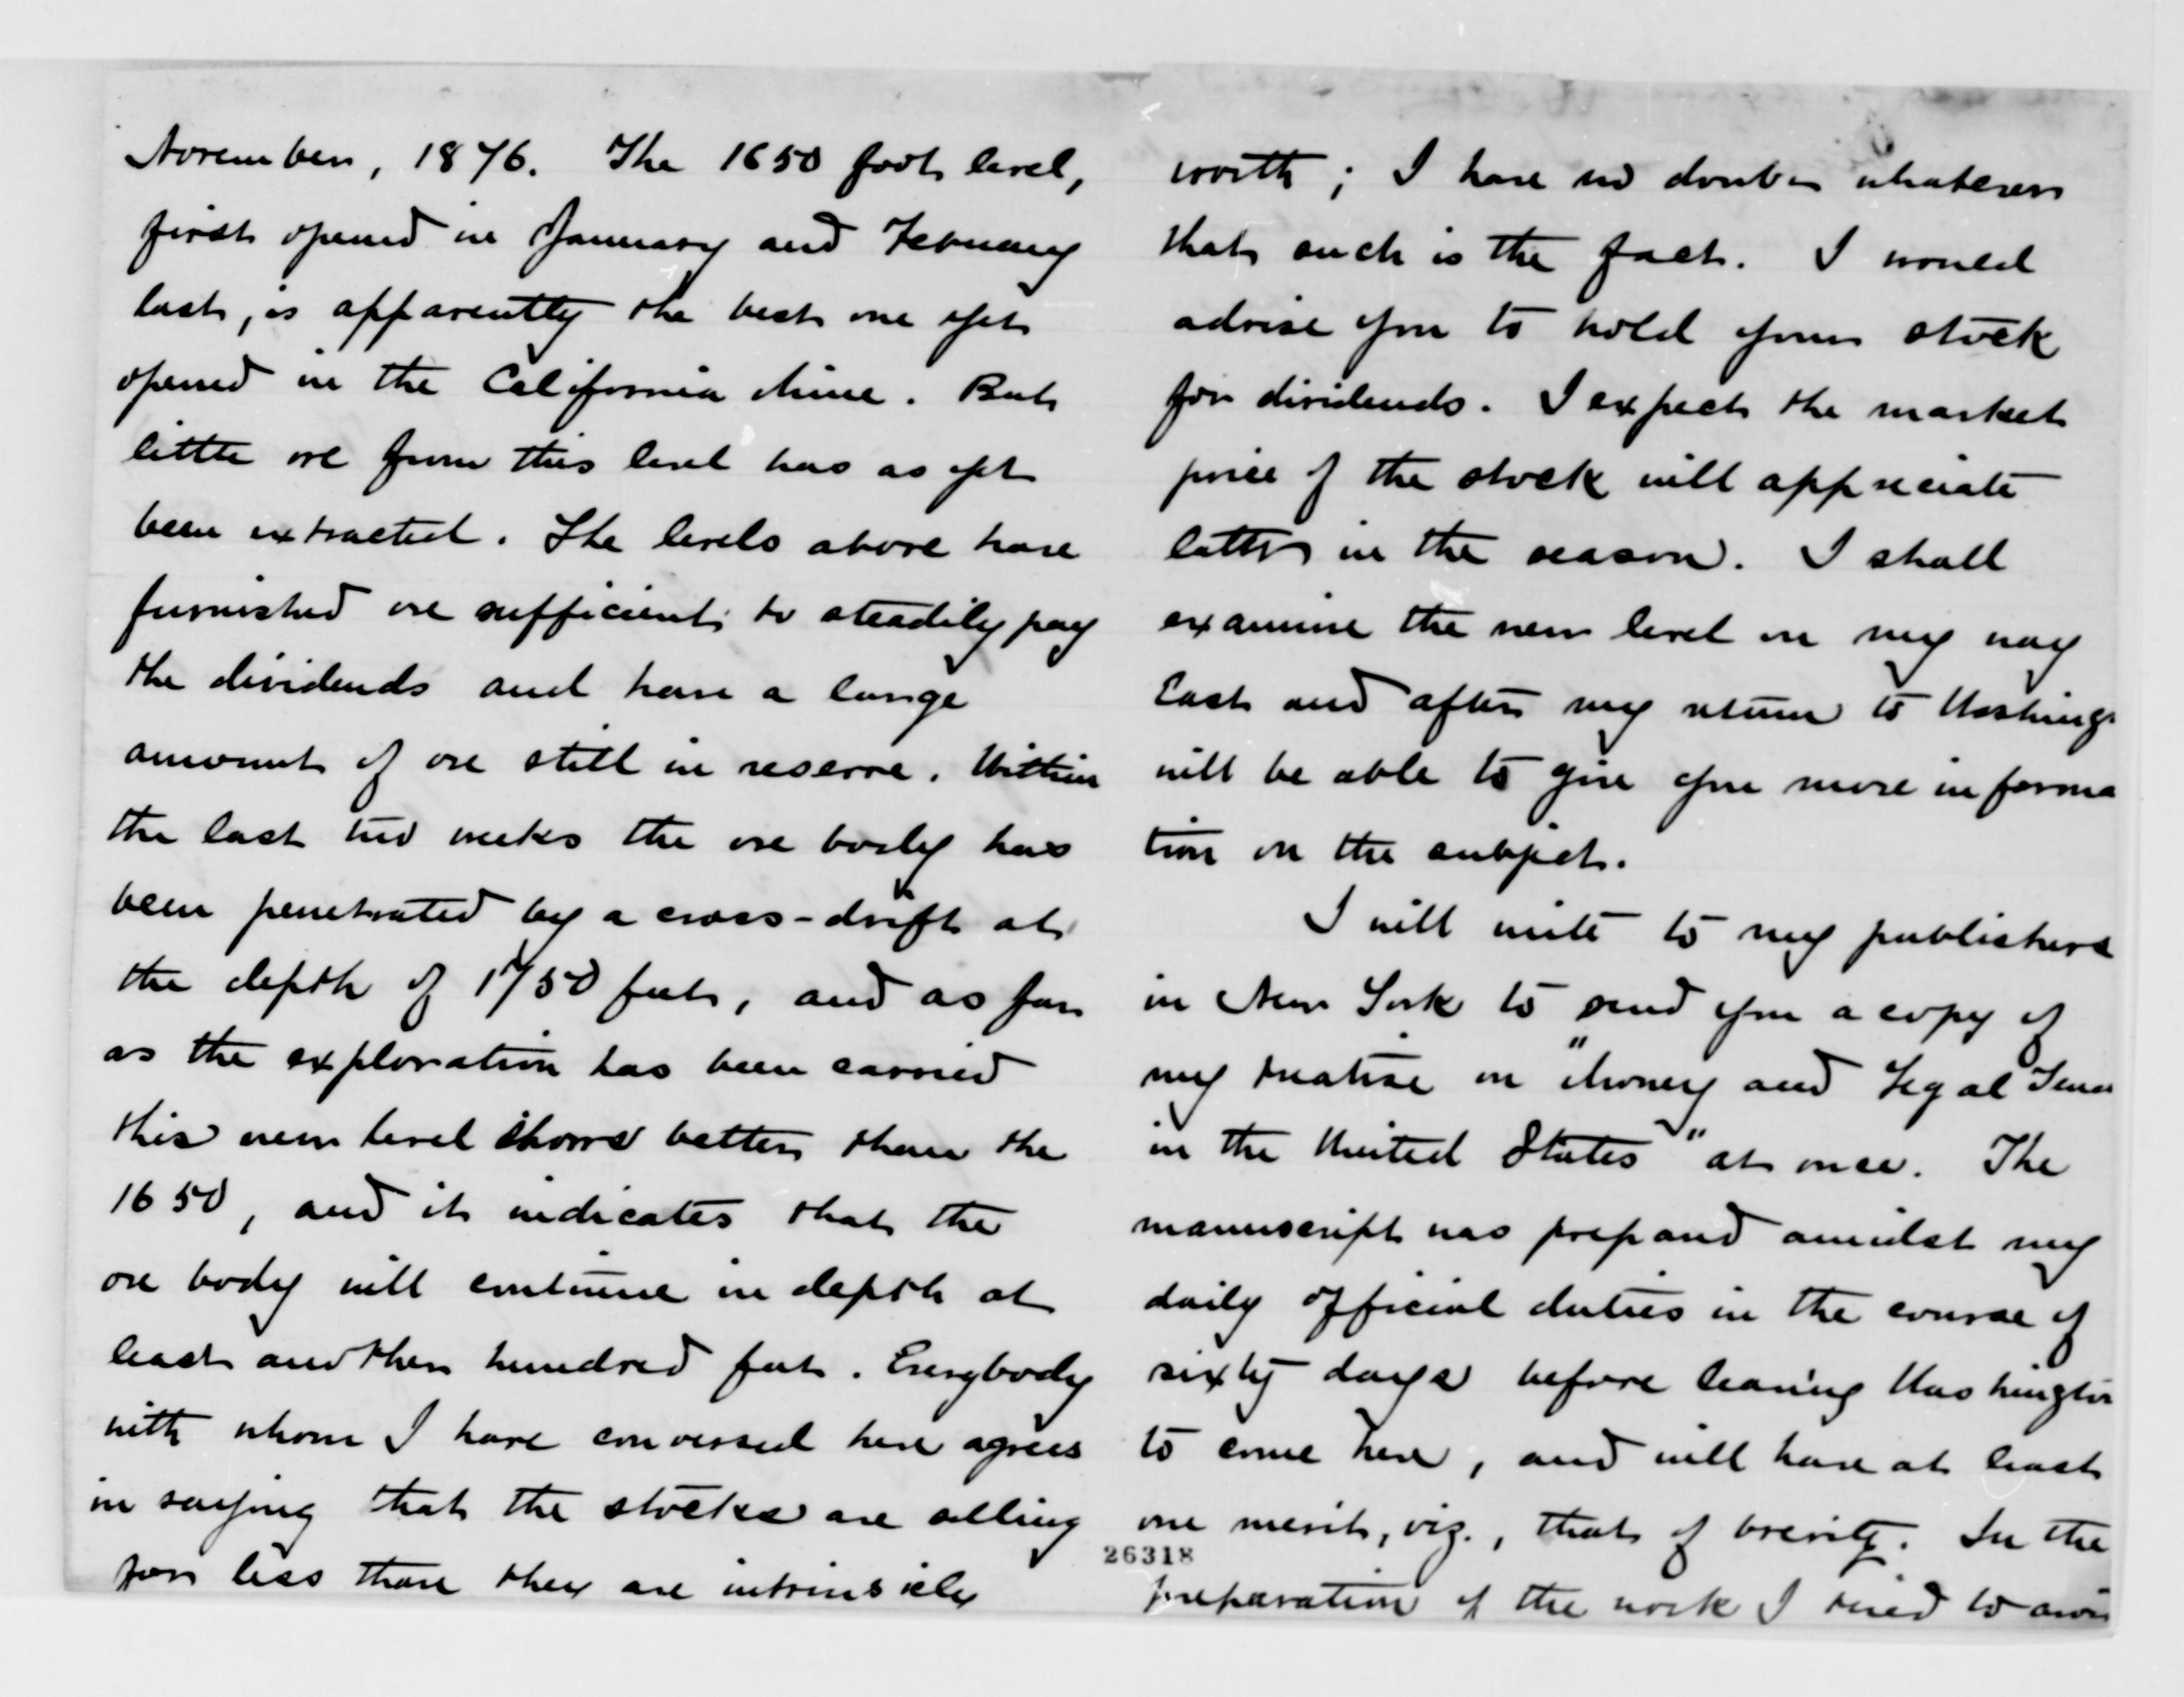 November, 1876. The 1650 foot level,
first opened in January and February
last, is apparently the best one yet
opened in the California Mine. But
little ore from this level has as yet
been extracted. The levels above have
furnished ore sufficient to steadily pay
the dividends and have a large
amount of ore still in reserve. Within
the last two weeks the ore body has
been penetrated by a cross-drift at
the depth of 1750 feet, and as far
as the exploration has been carried
this new level shows better than the
1650, and it indicates that the
ore body will continue in depth at
least another hundred feet. Everybody
with whom I have conversed here agrees
in saying that the stocks are selling
for less than they are intrinsicly
worth; I have no doubt whatever
that such is the fact. I would
advise you to hold your stock
for dividends. I expect the market
price of the stock will appreciate
latter in the season. I shall
examine the new level on my way
East and after my return to Washing
will be able to give you more informa
tion on the subject.
I will write to my publishers
in New York to send you a copy of
my treatise on "Money and Legal Tener
in the United States" at once. The
manuscript was prepared amidst my
daily official duties in the course of
sixty days before leaving Washington
to come here, and will have at least
one merit, viz., that of brevity. In the
26318
preparation of the work I tried to avoi